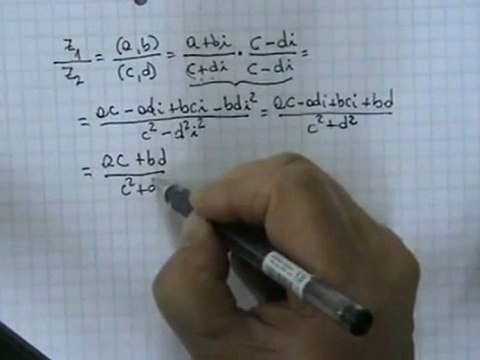 z₁/z₂ = (a,b)/(c,d) = (a+bi)/(c+di) · (c-di)/(c-di) =
= (ac-adi+bci-bdi²)/(c²-d²i²) = (ac-adi+bci+bd)/(c²+d²)
= (ac+bd)/(c²+d